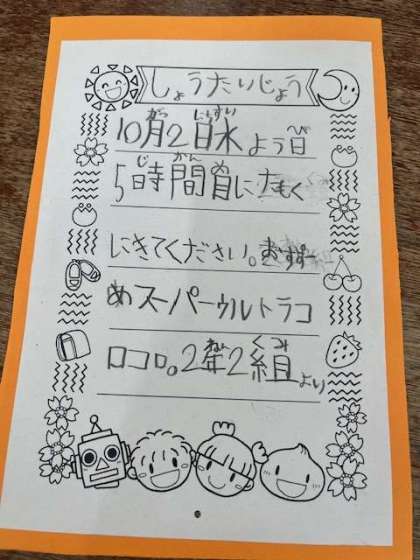 しょうたいじょう
10月2日水よう日
5時間目にたもく
にきてください。おすすー
めスーパーウルトラコ
ロコロ。2年2組より